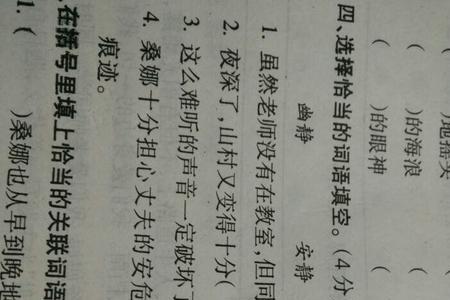 ( )地摇头 (
( )的海浪 (
( )的眼神 (
四、选择恰当的词语填空。(4分
幽静 安静
1. 虽然老师没有在教室,但同
2. 夜深了,山村又变得十分(
3. 这么难听的声音一定破坏了
4. 桑娜十分担心丈夫的安危
痕迹。
、在括号里填上恰当的关联词语
1. ( )桑娜也从早到晚地